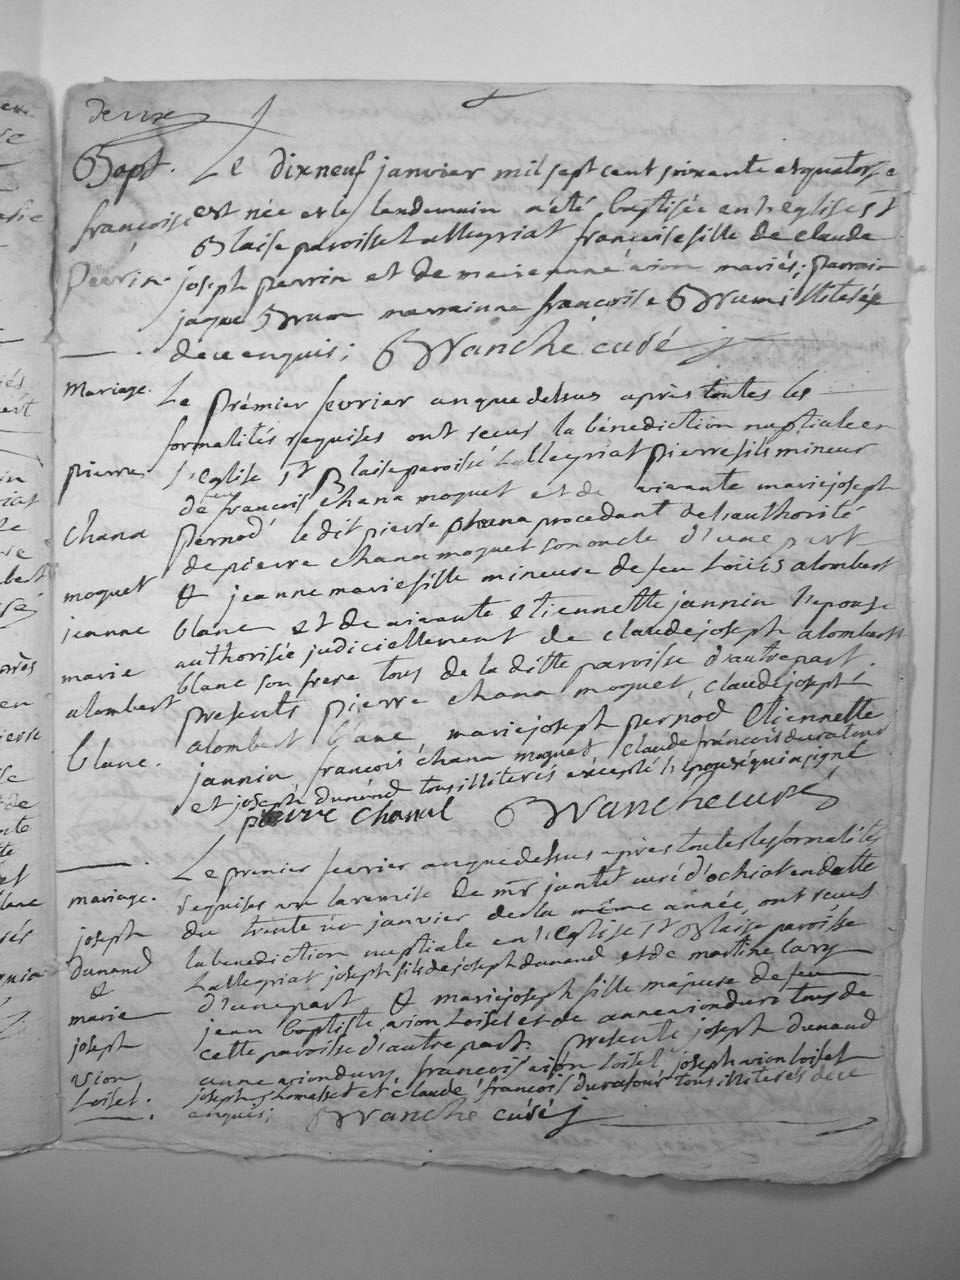 deux
Bapt. Le dixneuf janvier mil sept cent soixante et quatorze
françoise est née et le landemain a été baptisée en l'eglise st
Blaise paroisse Lalleyriat françoise fille de claude
Perrin. joseph perrin et de marieanne vion mariés; parrain
jaque Brun marrainne françoise Brun illiterés
de ce enquis; Blanche curé
Mariage. Le prémier fevrier an que dessus après toutes les
formalités requises ont receus la bénediction nuptiale en
pierre l'eglise St Blaise paroisse Lalleyriat pierre fils mineur
de feu françois chana moquet et de vivante marie joseph
chana pernod le dit pierre chana procedant de l'authorité
de pierre chana moquet son oncle d'une part
moquet & jeanne marie fille mineure de feu Loüis alombert
jeanne blanc et de vivante etiennette jannin l'epouse
marie authorisée judiciellement de claude joseph alombert
alombert blanc son frere tous de la ditte paroisse d'autre part.
presents pierre chana moquet, claude joseph
blanc. alombert blanc, marie joseph pernod Etiennette
jannin françois chana moquet, claude françois durafour
et joseph dunand tous illiterés excepté l'epoux qui a signé
pierre Chanal Blanche curé
Le premier fevrier an que dessus après toutes les formalités
mariage. requises vu la remise de mr jantet curé d'ochiat en datte
joseph du trente un janvier de la même année, ont receus
dunand la benediction nuptiale en l'eglise St Blaise paroisse
& Lalleyriat joseph fils de joseph dunand et de martine
marie d'une part & marie joseph fille majeure de feu
joseph jean baptiste vion Loiset et de anne viondury tous de
vion cette paroisse d'autre part. presents joseph dunand
Loiset. anne viondury, françois vion Loiset joseph vion Loiset
joseph et claude françois durafour tous illiterés de ce
enquis; Blanche curé